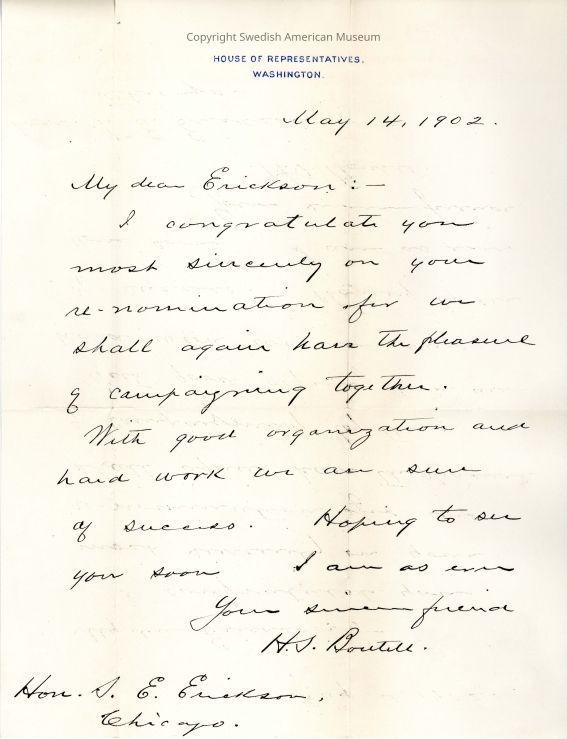 Copyright Swedish American Museum
HOUSE OF REPRESENTATIVES,
WASHINGTON.
May 14, 1902.
My dear Erickson:—
I congratulate you
most sincerely on your
re-nomination for we
shall again have the pleasure
of campaigning together.
With good organization and
hard work we are sure
of success. Hoping to see
you soon I am as ever
Your sincere friend
H.S. Boutell.
Hon. S. E. Erickson,
Chicago.